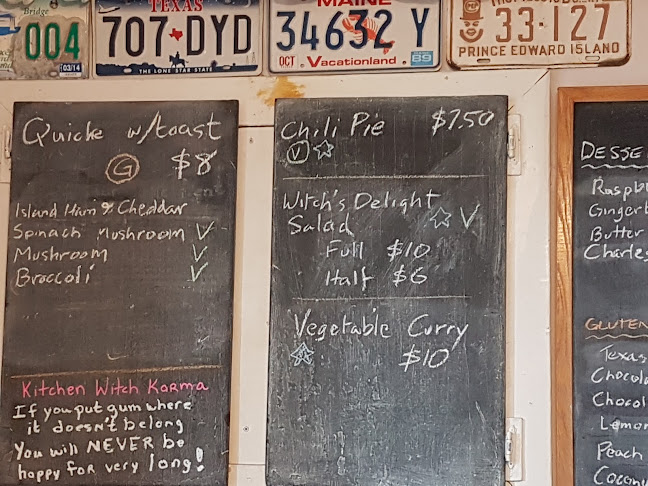 Bridge
004
03/14
TEXAS
707 DYD
THE LONE STAR STATE
MAINE
34632 Y
OCT Vacationland 89
33·127
PRINCE EDWARD ISLAND
Quiche w/toast
G $8
Island Ham & Cheddar
Spinach Mushroom V
Mushroom V
Broccoli V
Kitchen Witch Karma
If you put gum where
it doesn't belong
You will NEVER be
happy for very long!
Chili Pie $7.50
V
Witch's Delight
Salad V
Full $10
Half $6
Vegetable Curry
$10
DESSE
Raspb
Gingerb
Butter
Charles
GLUTEN
Texas
Chocola
Chocol
Lemon
Peach
Coconu